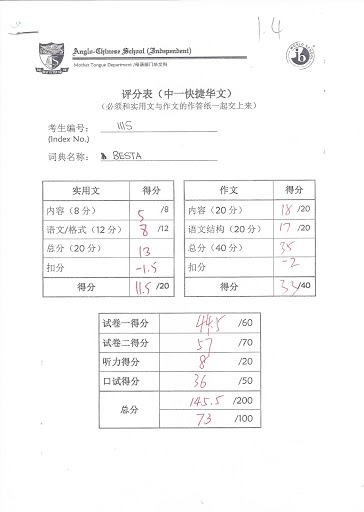 1.4
Anglo-Chinese School (Independent)
Mother Tongue Department /母语部门华文科
评分表（中一快捷华文）
（必须和实用文与作文的作答纸一起交上来）
考生编号： 1115
(Index No.)
词典名称： BESTA
实用文 得分
内容（8 分） 5 /8
语文/格式（12 分） 8 /12
总分（20 分） 13
扣分 -1.5
得分 11.5 /20
作文 得分
内容（20 分） 18 /20
语文结构（20 分） 17 /20
总分（40 分） 35
扣分 -2
得分 33 /40
试卷一得分 44.5 /60
试卷二得分 57 /70
听力得分 8 /20
口试得分 36 /50
总分 145.5 /200
73 /100